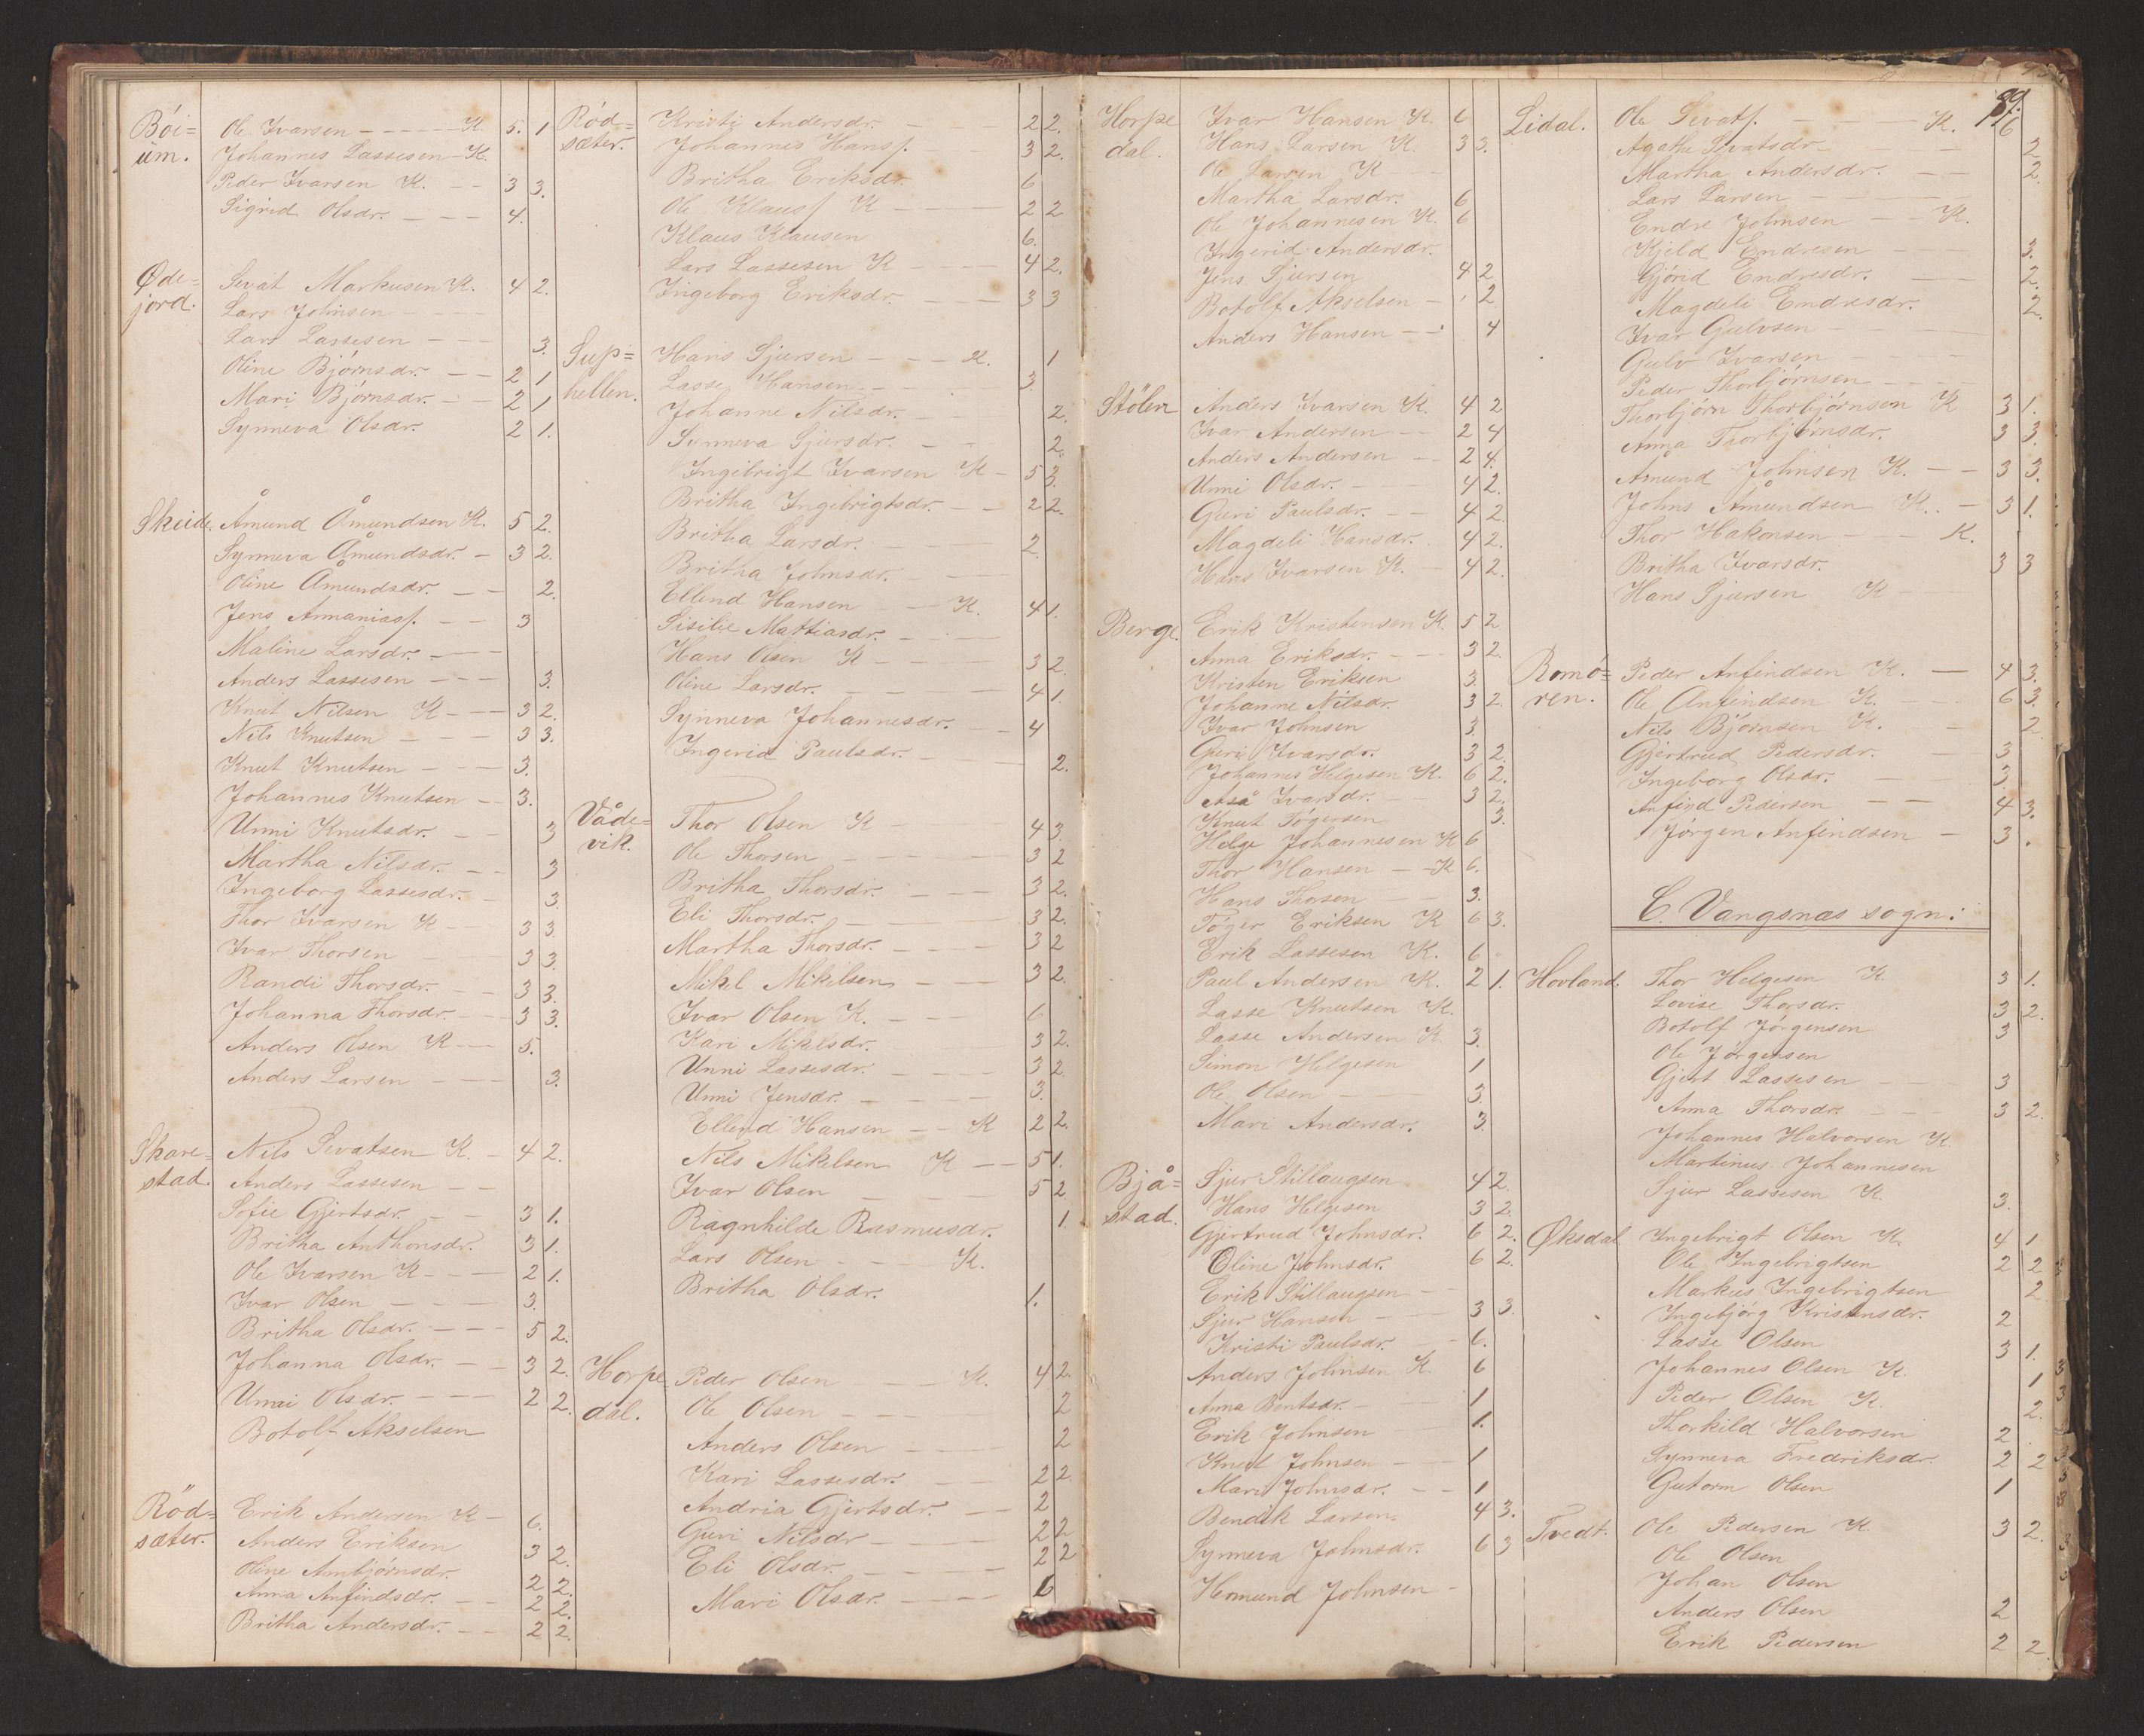 Bói= Ole Ivarsen - - - - - K. 5. 1
um. Johannes Lassesen - K.
Peder Ivarsen K. - - 3 3.
Sigrid Olsdr. - - - 4.
Øde= Sivat Markusen K. 4 2.
jord. Lars Johnsen - - -
Lars Lassesen - - - 3.
Oline Bjórnsdr. - - 2 1
Mari Bjórnsdr. - - 2 1
Synneva Olsdr. 2 1.
Skeide. Åmund Åmundsen K. 5 2.
Synneva Åmundsdr. - 3 2.
Oline Åmundsdr. - - 2.
Jens Annanias. - - 3
Maline Larsdr. - -
Anders Lassesen - - - 3.
Knut Nilsen K - - 3 2.
Nils Knutsen - - - 3 3.
Knut Knutsen - - - 3.
Johannes Knutsen - - 3.
Unni Knutsdr. - - 3
Martha Nilsdr. - - 3
Ingeborg Lassesdr. - 3.
Thor Ivarsen K - - 3 3.
Ivar Thorsen 3 3.
Randi Thorsdr. - - 3 3.
Johanna Thorsdr. - - 3 3.
Anders Olsen K - - 5.
Anders Larsen - - - 3.
Skare= Nils Sivatsen K. - 4 2.
stad. Anders Lassesen - -
Sofie Gjertsdr. - - 3 1.
Britha Anthonsdr. 3 1.
Ole Ivarsen K - - - 2 1.
Ivar Olsen - - - 3.
Britha Olsdr. - - - 5 2.
Johanna Olsdr. - - 3 2.
Unni Olsdr. - - - 2 2.
Botolf Akselsen
Röd= Erik Andersen K - 6.
sæter. Anders Eriksen 3 2.
Oline Ambjórnsdr. 2 2.
Anna Anfindsdr. - - 2 2.
Britha Andersdr. - - 2 2.
Röd= Kristi Andersdr. - - - 2 2.
sæter. Johannes Hans. - - 3 2.
Britha Eriksdr. 6
Ole Klaus. K - - - 2 2
Klaus Klausen 6.
Lars Lassesen K - - - 4 2.
Ingeborg Eriksdr. - - - 3 3
Sup= Hans Sjursen - - - K. 1
hellen. Lasse Hansen - - - 3.
Johanne Nilsdr. - - 2.
Synneva Sjursdr. - - 2.
Ingebrigt Ivarsen K - 5 3.
Britha Ingebrigtsdr. - - 2 2.
Britha Larsdr. - - - 2.
Britha Johnsdr. - - -
Ellend Hansen - - K. 4 1.
Sisilie Mattiasdr. - - -
Hans Olsen K - - - 3 2.
Oline Larsdr. - - - 4 1.
Synneva Johannesdr. - 4
Ingerid Paulsdr. - - 2.
Våde= Thor Olsen K - - - 4 3.
vik. Ole Thorsen - - - - 3 2
Britha Thorsdr. - - - 3 2.
Eli Thorsdr. - - - - 3 2.
Martha Thorsdr. - - - 3 2
Mikel Mikelsen - - - 3 2.
Ivar Olsen K. - - - 6
Kari Mikelsdr. 3 2.
Unni Lassesdr. - - - - 3 2
Unni Jensdr. - - - - 3.
Ellend Hansen - - K 2 2.
Nils Mikelsen K - - 5 1.
Ivar Olsen - - - 5 2.
Ragnhilde Rasmusdr. 1.
Lars Olsen - - - K.
Britha Olsdr. 1.
Horpe Peder Olsen - - K. 4 2.
dal. Ole Olsen - - - 2
Anders Olsen - - - 2
Kari Lassesdr. - - 2 2.
Andria Gjertsdr. - - 2
Guri Nilsdr - - - - 2 2
Eli Olsdr. - - - - 2 2
Mari Olsdr. - - - - 6
Horpe Ivar Hansen K. 6
dal. Hans Larsen K. 3 3.
Ole Larsen K - - -
Martha Larsdr. 6
Ole Johannesen K. 6
Ingerid Andersdr.
Jens Sjursen 4 2.
Botolf Akselsen - 1 2
Anders Hansen - - 4
Stölen Anders Ivarsen K. 4 2
Ivar Andersen - - 2 4
Anders Andersen - - 2 4.
Unni Olsdr. - - 4 2.
Guri Paulsdr. - - 4 2.
Magdeli Hansdr. 4 2.
Hans Ivarsen K. - 4 2.
Berge. Erik Kristensen K. 5 2
Anna Eriksdr. - - - 3 2.
Kristen Eriksen 3.
Johanne Nilsdr. 3 2.
Ivar Johnsen 3.
Geri Ivarsdr. 3 2.
Johannes Helgesen K. 6 2.
Aså Ivarsdr. - - 3 2.
Knut Tógersen 3.
Helge Johannesen K 6
Thor Hansen - - K 6.
Hans Thorsen - - 3.
Tóger Eriksen K 6 3.
Erik Lassesen K. 6
Paul Andersen K. 2 1.
Lasse Knutsen K.
Lasse Andersen K. 3.
Simon Helgesen 1
Ole Olsen - - 3.
Mari Andersdr. 3.
Bjå= Sjur Stillaugsen 4 2.
stad. Hans Helgesen 3 2.
Gjertrud Johnsdr. 6 2.
Oline Johnsdr. 6 2.
Erik Stillaugsen - -
Sjur Hansen - - 3 3.
Kristi Paulsdr. - 6.
Anders Johnsen K. 6
Anna Bentsdr. - - 1
Erik Johnsen 1.
Knut Johnsen - - 1
Mari Johnsdr. - - 1
Bendik Larsen 4 3.
Synneva Johnsdr. 6 3
Homund Johnsen -
89.
Lidal. Ole Sivats. - - - K. 1 6
Agathe Sivatsdr - - - 2
Martha Andersdr. - - 2.
Lars Larsen - - -
Endre Johnsen - - K.
Kjeld Endresen - - 3.
Gjórid Endresdr. - - 2.
Magdeli Endresdr. 2.
Ivar Gulvsen -
Gulv Ivarsen - -
Peder Thorbjórnsen - - -
Thorbjórn Thorbjórnsen K 3 1.
Anna Thorbjórnsdr. 3 3.
Amund Johnsen K. - - 3 3.
Johns Åmundsen K. - 3 1.
Thor Hakonsen - - K.
Britha Ivarsdr. 3 3
Hans Sjursen K - -
Romó= Peder Anfindsen K. - 4 3.
ren. Ole Anfindsen K. - - 6 3.
Nils Bjórnsen K. - 2
Gjertrud Pedersdr. - 3
Ingeborg Olsdr. - 3.
Anfind Pedersen - - 4 3.
Jórgen Anfindsen - 3 .
C. Vangsnæs sogn:
Hovland. Thor Helgesen K 3 1.
Lovise Thorsdr. 3 2.
Botolf Jórgensen 3
Ole Jórgensen
Gjert Lassesen - - 3
Anna Thorsdr. - - - 3 2.
Johannes Halvorsen K
Martinus Johannesen
Sjur Lassesen K. 3.
Øksdal Ingebrigt Olsen K. 4 1
Ole Ingebrigtsen 2 2
Markus Ingebrigtsen 2
Ingebjórg Kristensdr. 2
Lasse Olsen 3 1.
Johannes Olsen K. 1
Peder Olsen K. 2.
Thorkild Halvorsen 2
Synneva Fredriksdr. 2 2
Gutorm Olsen 1
Tvedt. Ole Pedersen K. 3 2.
Ole Olsen
Johan Olsen
Anders Olsen 2
Erik Pedersen 2 2.